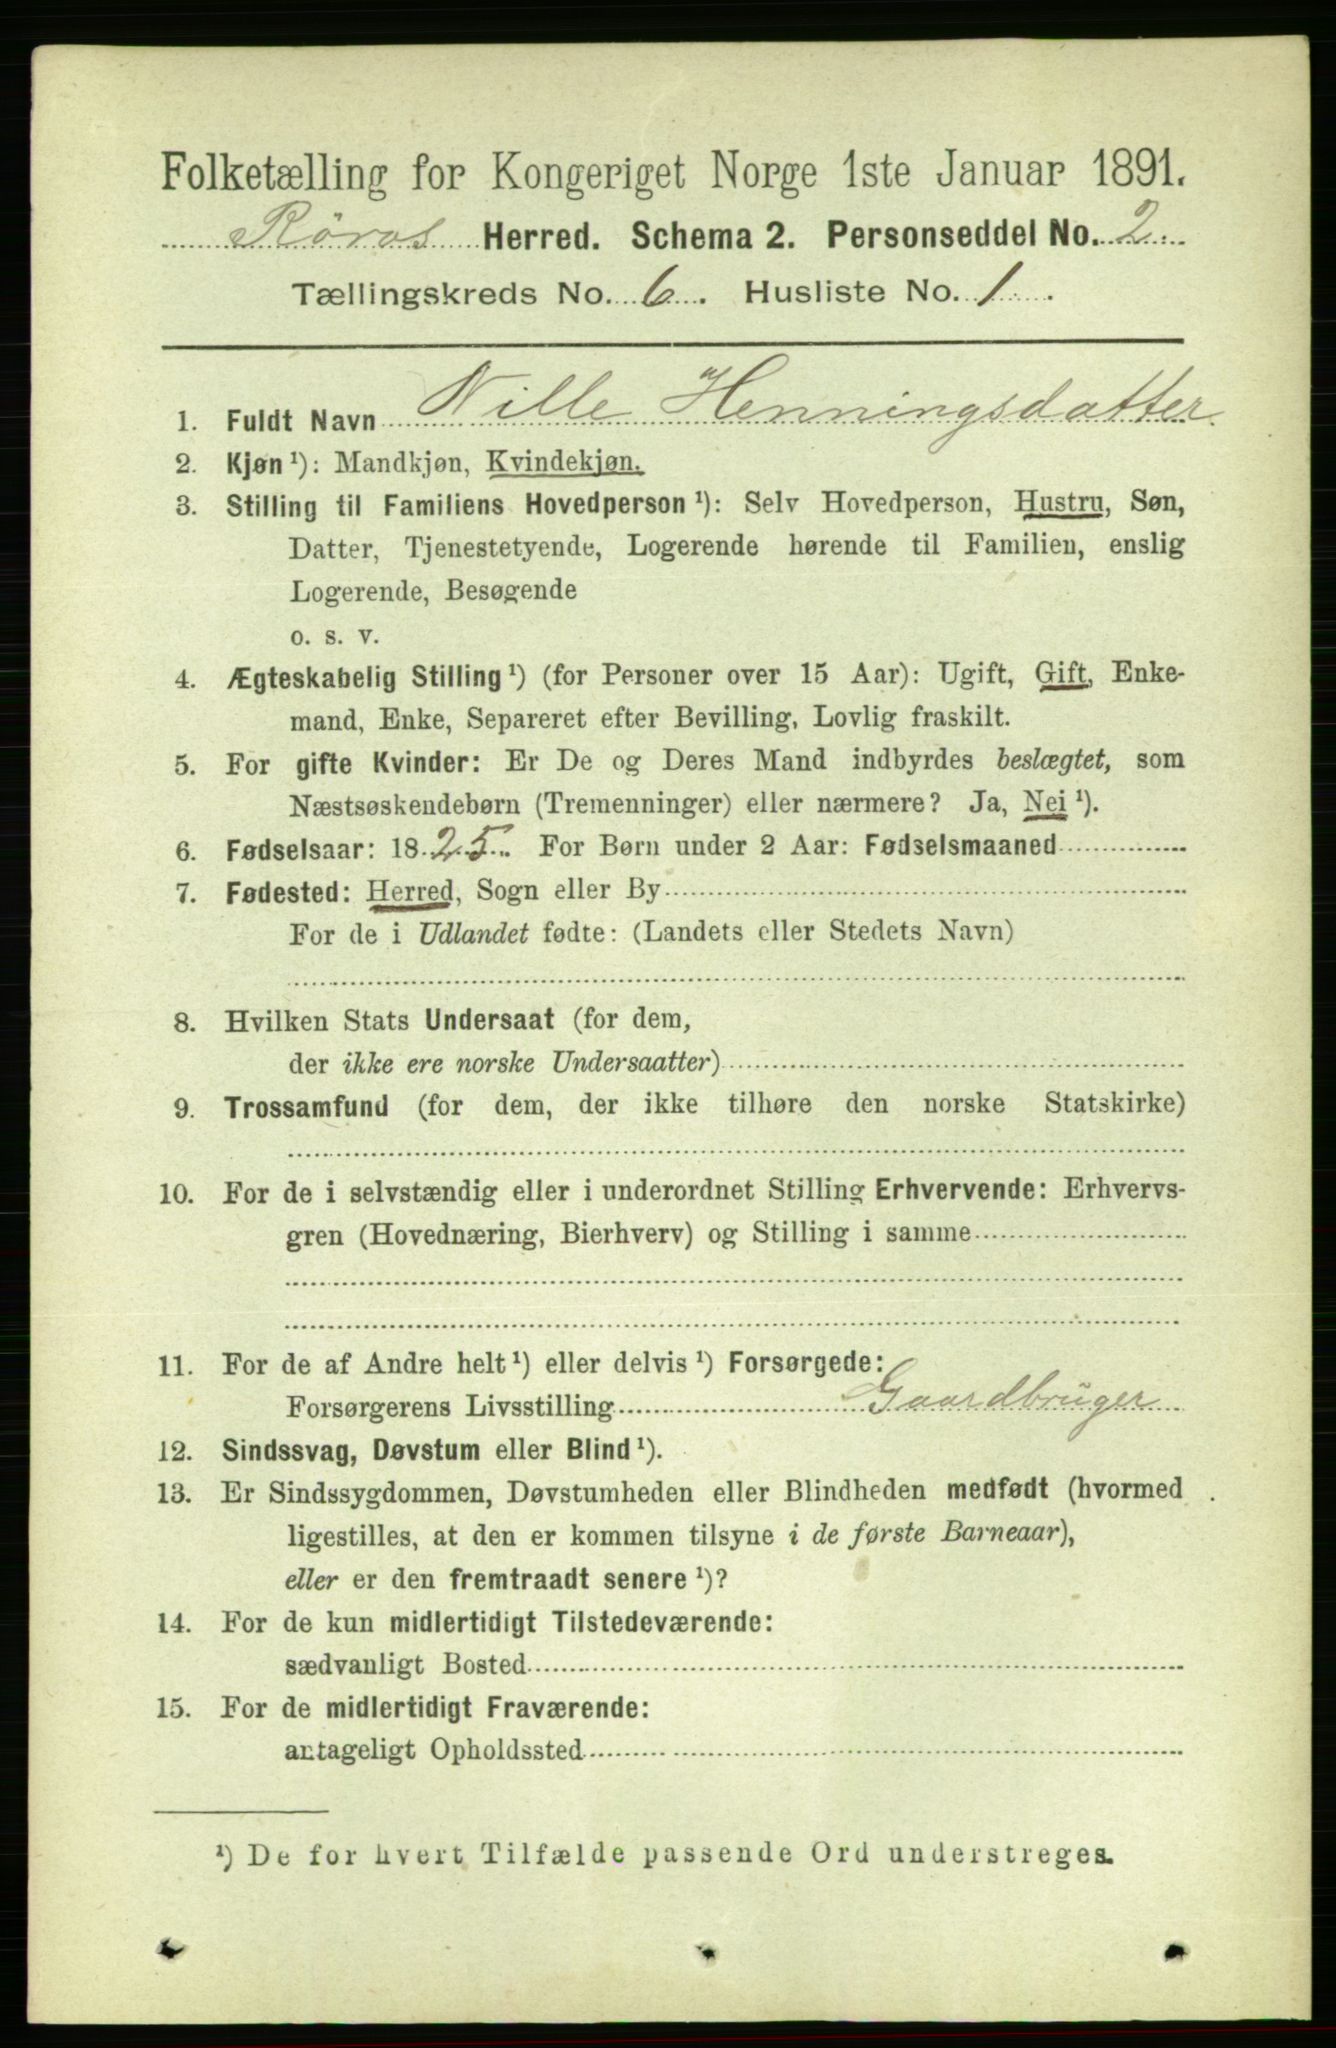 Folketælling for Kongeriget Norge 1ste Januar 1891.
Röros Herred. Schema 2. Personseddel No. 2
Tællingskreds No. 6. Husliste No. 1.
1. Fuldt Navn Nille Henningsdatter
2. Kjøn ¹): Mandkjøn, Kvindekjøn.
3. Stilling til Familiens Hovedperson ¹): Selv Hovedperson, Hustru, Søn,
Datter, Tjenestetyende, Logerende hørende til Familien, enslig
Logerende, Besøgende
o. s. v.
4. Ægteskabelig Stilling ¹) (for Personer over 15 Aar): Ugift, Gift, Enke-
mand, Enke, Separeret efter Bevilling, Lovlig fraskilt.
5. For gifte Kvinder: Er De og Deres Mand indbyrdes beslægtet, som
Næstsøskendebørn (Tremenninger) eller nærmere? Ja, Nei ¹).
6. Fødselsaar: 1825. For Børn under 2 Aar: Fødselsmaaned
7. Fødested: Herred, Sogn eller By
For de i Udlandet fødte: (Landets eller Stedets Navn)
8. Hvilken Stats Undersaat (for dem,
der ikke ere norske Undersaatter)
9. Trossamfund (for dem, der ikke tilhøre den norske Statskirke)
10. For de i selvstændig eller i underordnet Stilling Erhvervende: Erhvervs-
gren (Hovednæring, Bierhverv) og Stilling i samme
11. For de af Andre helt ¹) eller delvis ¹) Forsørgede:
Forsørgerens Livsstilling Gaardbrüger
12. Sindssvag, Døvstum eller Blind ¹).
13. Er Sindssygdommen, Døvstumheden eller Blindheden medfødt (hvormed
ligestilles, at den er kommen tilsyne i de første Barneaar),
eller er den fremtraadt senere ¹)?
14. For de kun midlertidigt Tilstedeværende:
sædvanligt Bosted
15. For de midlertidigt Fraværende:
antageligt Opholdssted
¹) De for hvert Tilfælde passende Ord understreges.